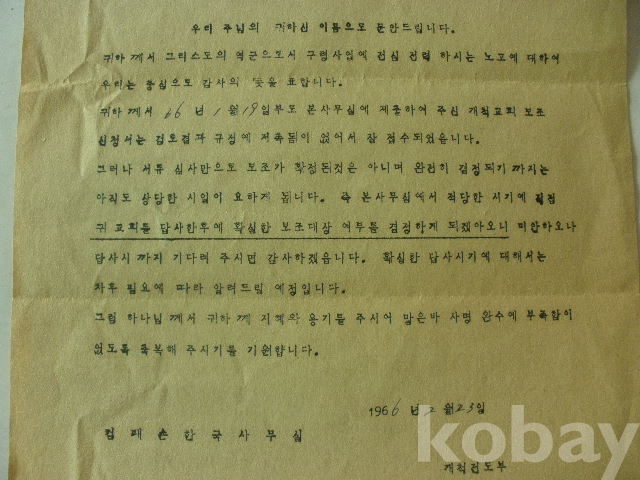 우리 주님의 귀하신 이름으로 문안드립니다.
귀하께서 그리스도의 역군으로서 구령사업에 전심 전력 하시는 노고에 대하여
우리는 충심으로 감사의 뜻을 표합니다.
귀하께서 66 년 1 월 19일부로 본사무실에 제출하여 주신 개척교회 보조
신청서는 검토결과 규정에 저촉됨이 없어서 잘 접수되었읍니다.
그러나 서류 심사만으로 보조가 확정된것은 아니며 완전히 결정되기 까지는
아직도 상당한 시일이 요하게 됩니다. 즉 본사무실에서 적당한 시기에 직접
귀 교회를 답사한후에 확실한 보조대상 여부를 결정하게 되겠아오니 미안하오나
답사시 까지 기다려 주시면 감사하겠읍니다. 확실한 답사시기에 대해서는
차후 필요에 따라 알려드릴 예정입니다.
그럼 하나님 께서 귀하께 지혜와 용기를 주시어 맡은바 사명 완수에 부족함이
없도록 축복해 주시기를 기원합니다.
1966 년 2 월 23일
컴패숀한국사무실
개척전도부
kobay